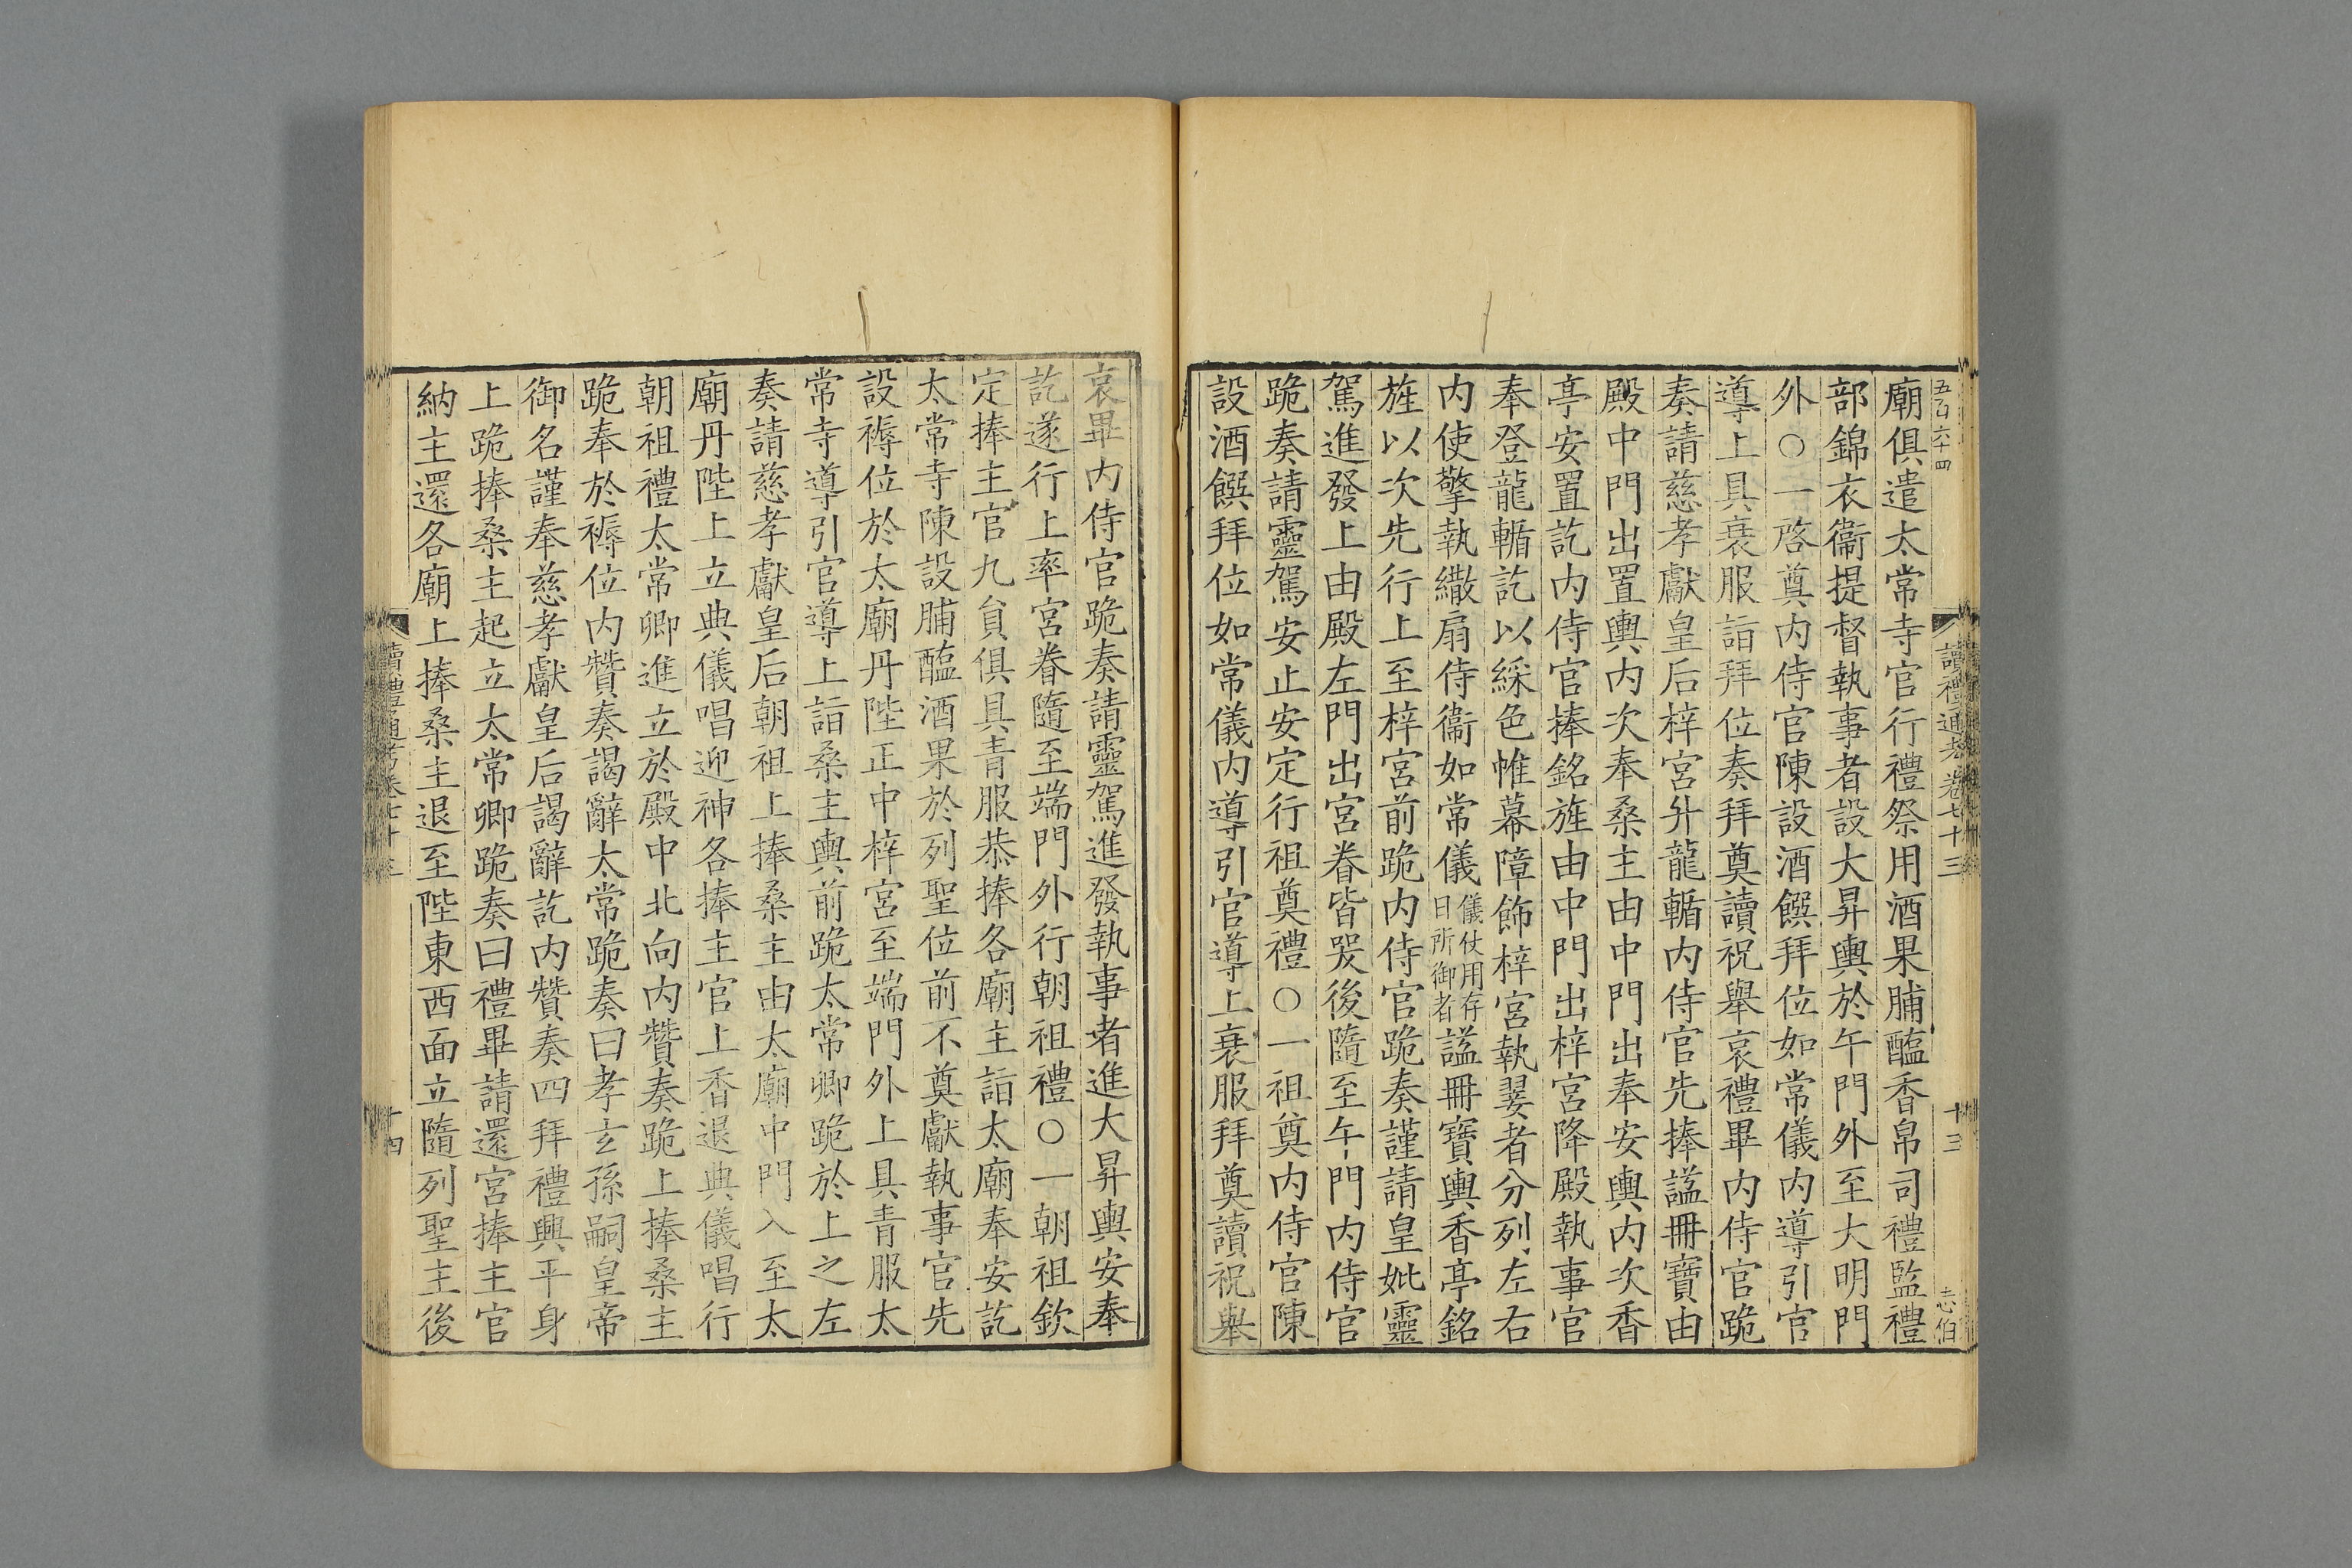 五百六十四
讀禮通考卷七十三
十三
志伯
廟俱遣太常寺官行禮祭用酒果脯醢香帛司禮監禮
部錦衣衞提督執事者設大昇輿於午門外至大明門
外○一啓奠内侍官陳設酒饌拜位如常儀内導引官
導上具衰服詣拜位奏拜奠讀祝舉哀禮畢内侍官跪
奏請慈孝獻皇后梓宮升龍輴内侍官先捧謚冊寶由
殿中門出置輿内次奉桑主由中門出奉安輿内次香
亭安置訖内侍官捧銘旌由中門出梓宮降殿執事官
奉登龍輴訖以綵色帷幕障飾梓宮執翣者分列左右
内使擎執繖扇侍衞如常儀儀仗用存日所御者謚冊寶輿香亭銘
旌以次先行上至梓宮前跪内侍官跪奏謹請皇妣靈
駕進發上由殿左門出宮眷皆哭後隨至午門内侍官
跪奏請靈駕安止安定行祖奠禮○一祖奠内侍官陳
設酒饌拜位如常儀内導引官導上衰服拜奠讀祝舉
哀畢内侍官跪奏請靈駕進發執事者進大昇輿安奉
訖遂行上率宮眷隨至端門外行朝祖禮○一朝祖欽
定捧主官九員俱具青服恭捧各廟主詣太廟奉安訖
太常寺陳設脯醢酒果於列聖位前不奠獻執事官先
設褥位於太廟丹陛正中梓宮至端門外上具青服太
常寺導引官導上詣桑主輿前跪太常卿跪於上之左
奏請慈孝獻皇后朝祖上捧桑主由太廟中門入至太
廟丹陛上立典儀唱迎神各捧主官上香退典儀唱行
朝祖禮太常卿進立於殿中北向内贊奏跪上捧桑主
跪奉於褥位内贊奏謁辭太常跪奏曰孝玄孫嗣皇帝
御名謹奉慈孝獻皇后謁辭訖内贊奏四拜禮興平身
上跪捧桑主起立太常卿跪奏曰禮畢請還宮捧主官
納主還各廟上捧桑主退至陛東西面立隨列聖主後
讀禮通考卷七十三
十四